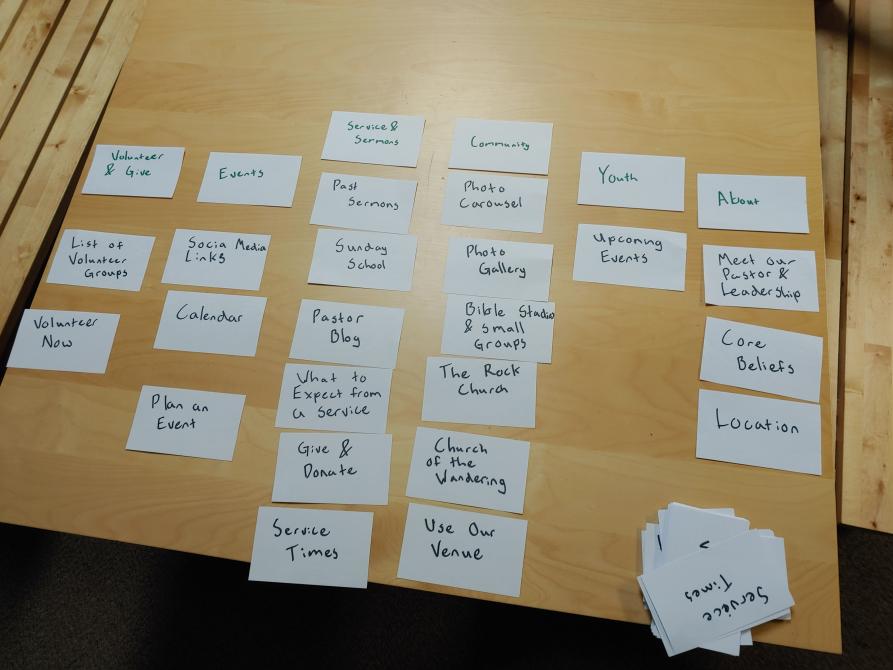 Volunteer
& Give
List of
Volunteer
Groups
Volunteer
Now
Events
Socia Media
Links
Calendar
Plan an
Event
Service &
Sermons
Past
Sermons
Sunday
School
Pastor
Blog
What to
Expect from
a Service
Give &
Donate
Service
Times
Community
Photo
Carousel
Photo
Gallery
Bible Studies
& Small
Groups
The Rock
Church
Church
of the
Wandering
Use Our
Venue
Youth
Upcoming
Events
About
Meet our
Pastor &
Leadership
Core
Beliefs
Location
Service
Times